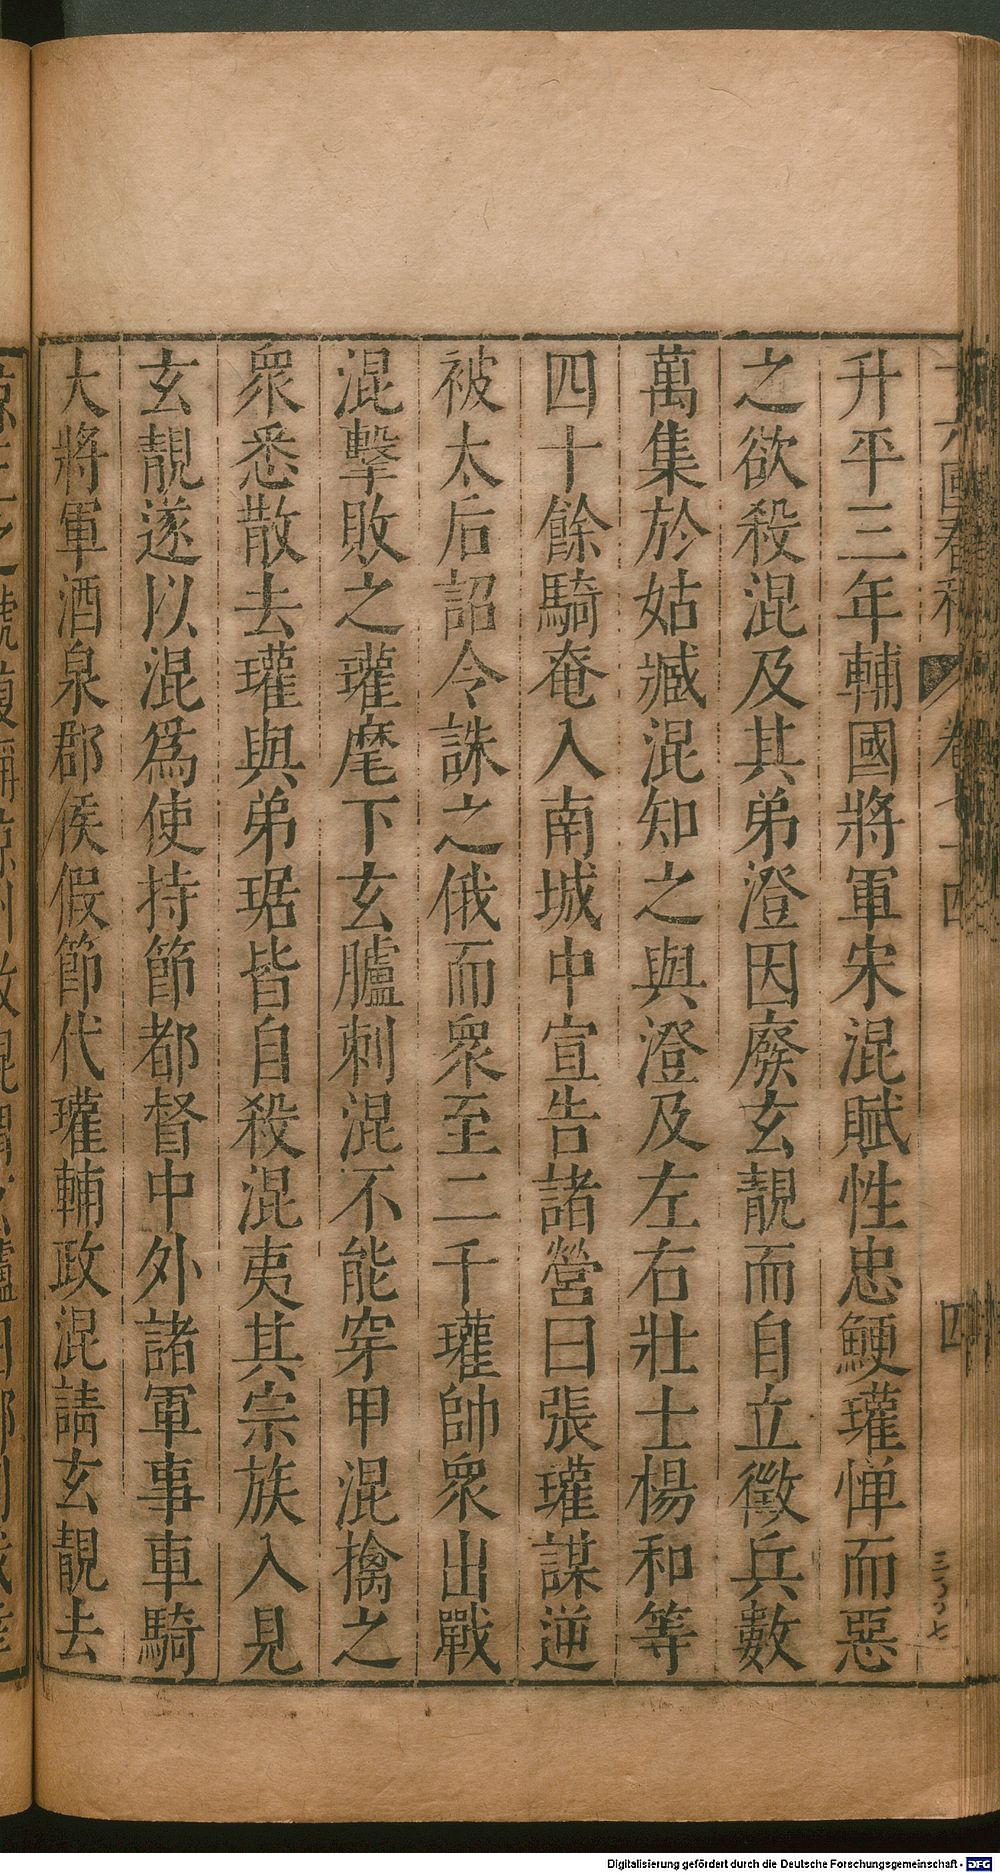 升平三年輔國將軍宋混賦性忠鯁瓘憚而惡
之欲殺混及其弟澄因廢玄靚而自立徵兵數
萬集於姑臧混知之與澄及左右壯士楊和等
四十餘騎奄入南城中宣告諸營曰張瓘謀逆
被太后詔令誅之俄而衆至二千瓘帥衆出戰
混擊敗之瓘麾下玄臚刺混不能穿甲混擒之
衆悉散去瓘與弟琚皆自殺混夷其宗族入見
玄靚遂以混爲使持節都督中外諸軍事車騎
大將軍酒泉郡侯假節代瓘輔政混請玄靚去
Digitalisierung gefördert durch die Deutsche Forschungsgemeinschaft - DFG